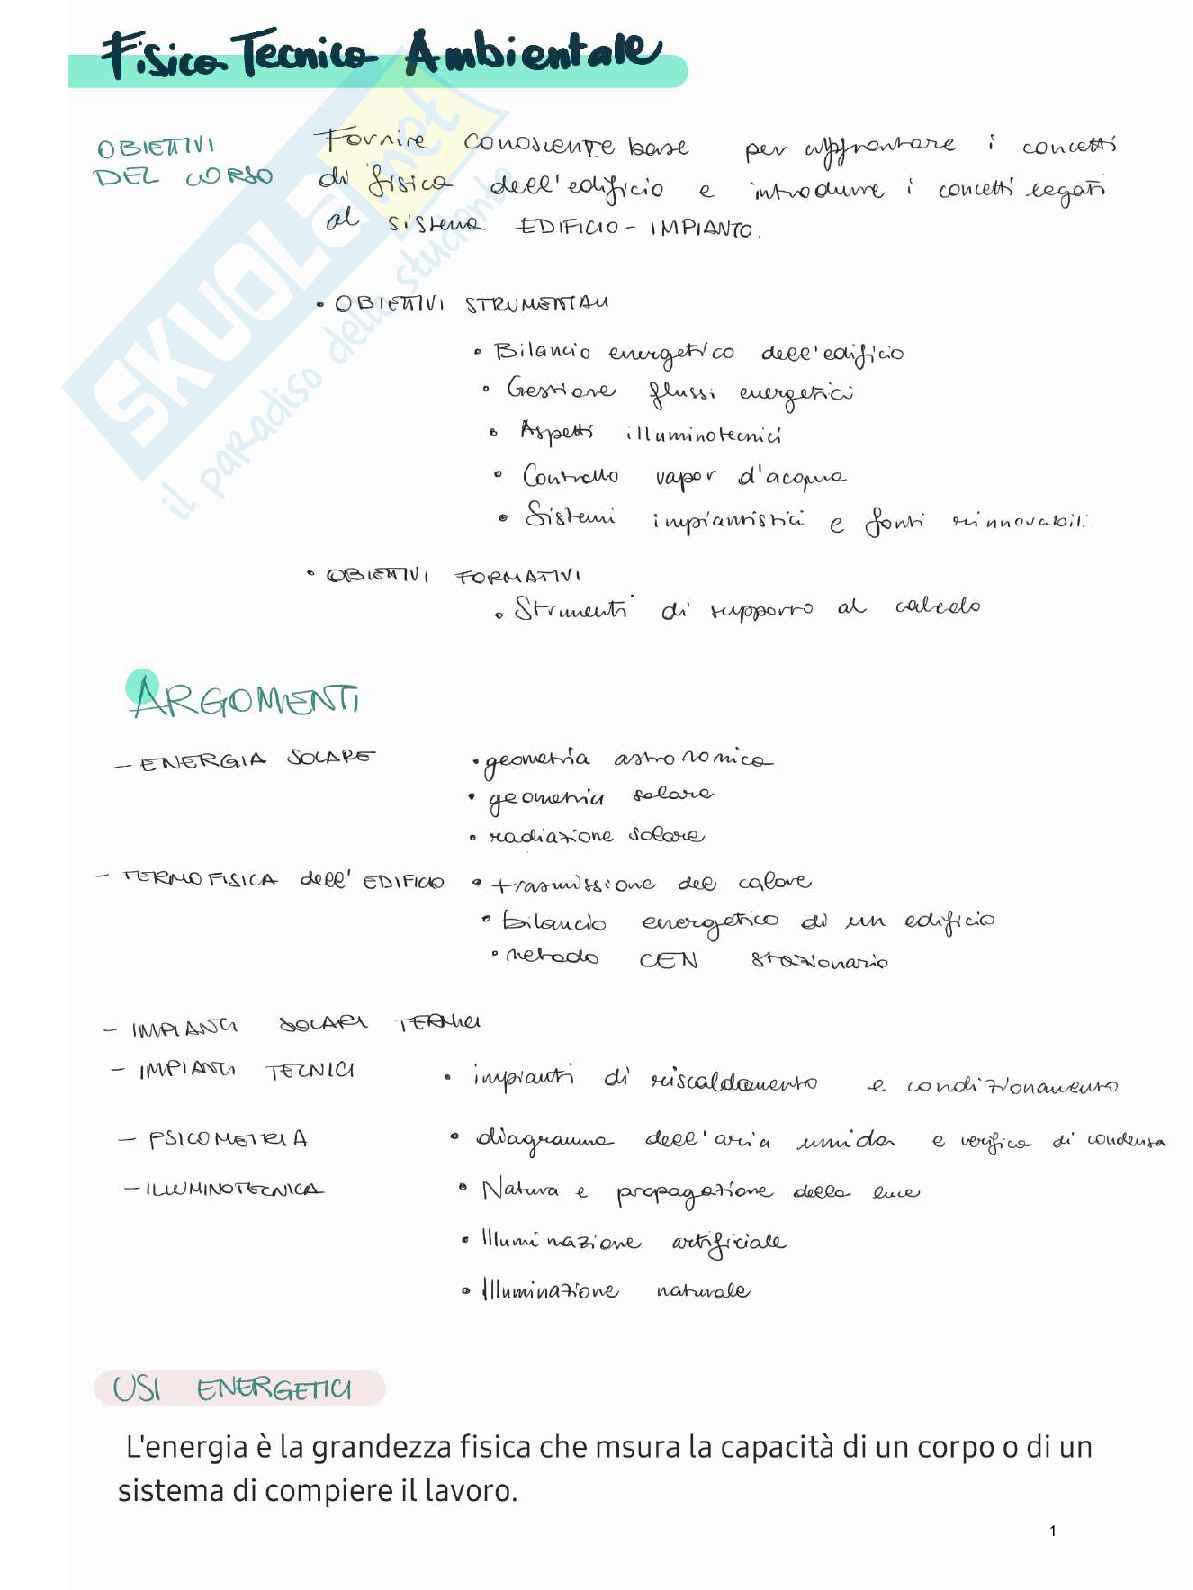 Fisica Tecnica Ambientale
OBIETTIVI DEL CORSO
Fornire conoscenze base per affrontare i concetti
di fisica dell'edificio e introdurre i concetti legati
al sistema EDIFICIO - IMPIANTO.
• OBIETTIVI STRUMENTALI
• Bilancio energetico dell'edificio
• Gestione flussi energetici
• Aspetti illuminotecnici
• Controllo vapor d'acqua
• Sistemi impiantistici e fonti rinnovabili
• OBIETTIVI FORMATIVI
• Strumenti di supporto al calcolo
ARGOMENTI
- ENERGIA SOLARE • geometria astronomica
• geometria solare
• radiazione solare
- TERMOFISICA dell'EDIFICIO • trasmissione del calore
• bilancio energetico di un edificio
• metodo CEN stazionario
- IMPIANTI SOLARI TERMICI
- IMPIANTI TECNICI • impianti di riscaldamento e condizionamento
- PSICOMETRIA • diagramma dell'aria umida e verifica di condensa
- ILLUMINOTECNICA • Natura e propagazione della luce
• Illuminazione artificiale
• Illuminazione naturale
USI ENERGETICI
L'energia è la grandezza fisica che msura la capacità di un corpo o di un
sistema di compiere il lavoro.
1
SKUOLA.net
il paradiso dello studente